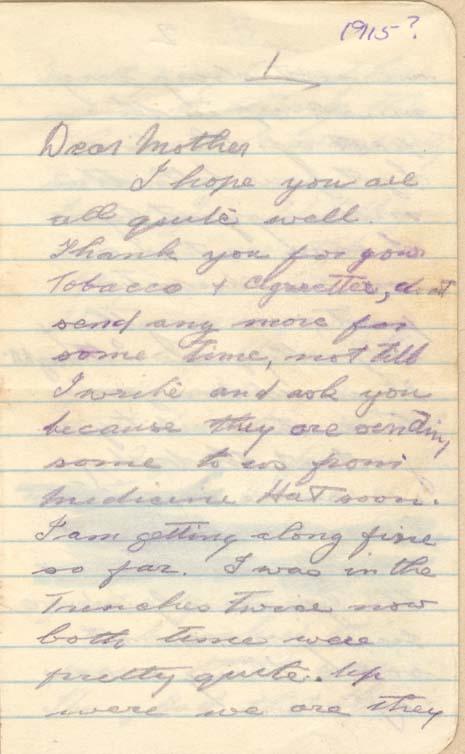 1915?
1
Dear Mother
I hope you are
all quite well.
Thank you for your
Tobacco + Cigarettes, dont
send any more for
some time, not till
I write and ask you
because they are sending
some to us from
Medicine Hat soon.
I am getting along fine
so far. I was in the
Trenches twice now
both time were
pretty quite. Up
were we are they